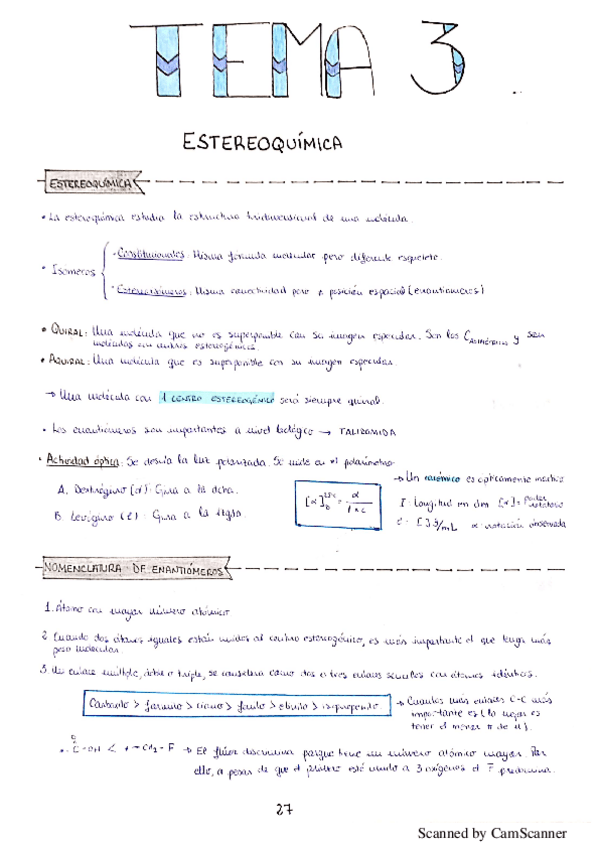 TEMA 3
ESTEREOQUÍMICA
ESTEREOQUÍMICA
• La estereoquímica estudia la estructura tridimensional de una molécula.
• Isómeros
- Constitucionales: Misma fórmula molecular pero diferente esqueleto.
- Estereoisómeros: Misma conectividad pero ≠ posición espacial (enantiómeros)
• QUIRAL: Una molécula que no es superponible con su imagen especular. Son los C asimétricos y son
moléculas con centros estereogénicos.
• AQUIRAL: Una molécula que es superponible con su imagen especular.
→ Una molécula con 1 CENTRO ESTEREOGÉNICO será siempre quiral.
• Los enantiómeros son importantes a nivel biológico → TALIDOMIDA
• Actividad óptica: Se desvía la luz polarizada. Se mide en el polarímetro
→ Un racémico es ópticamente inactivo
A. Dextrógiro (d): Gira a la dcha.
B. Levógiro (l): Gira a la izqda.
[α] = α / l × c
l: longitud en dm [α] =
c: [ ] g/mL α: rotación observada
NOMENCLATURA DE ENANTIÓMEROS
1. Átomo con mayor número atómico
2. Cuando dos átomos iguales están unidos al centro estereogénico, es más importante el que tenga más
peso molecular.
3. Un enlace múltiple, doble o triple, se considera como dos o tres enlaces sencillos con átomos idénticos.
> > > > >
→ Cuantos más enlaces C-C más
importante es
tener el menor nº de H).
C-OH < + CH₂-F → El flúor discrimina porque tiene un número atómico mayor. Por
ello, a pesar de que el primero esté unido a 3 oxígenos el F predomina.
27
Scanned by CamScanner